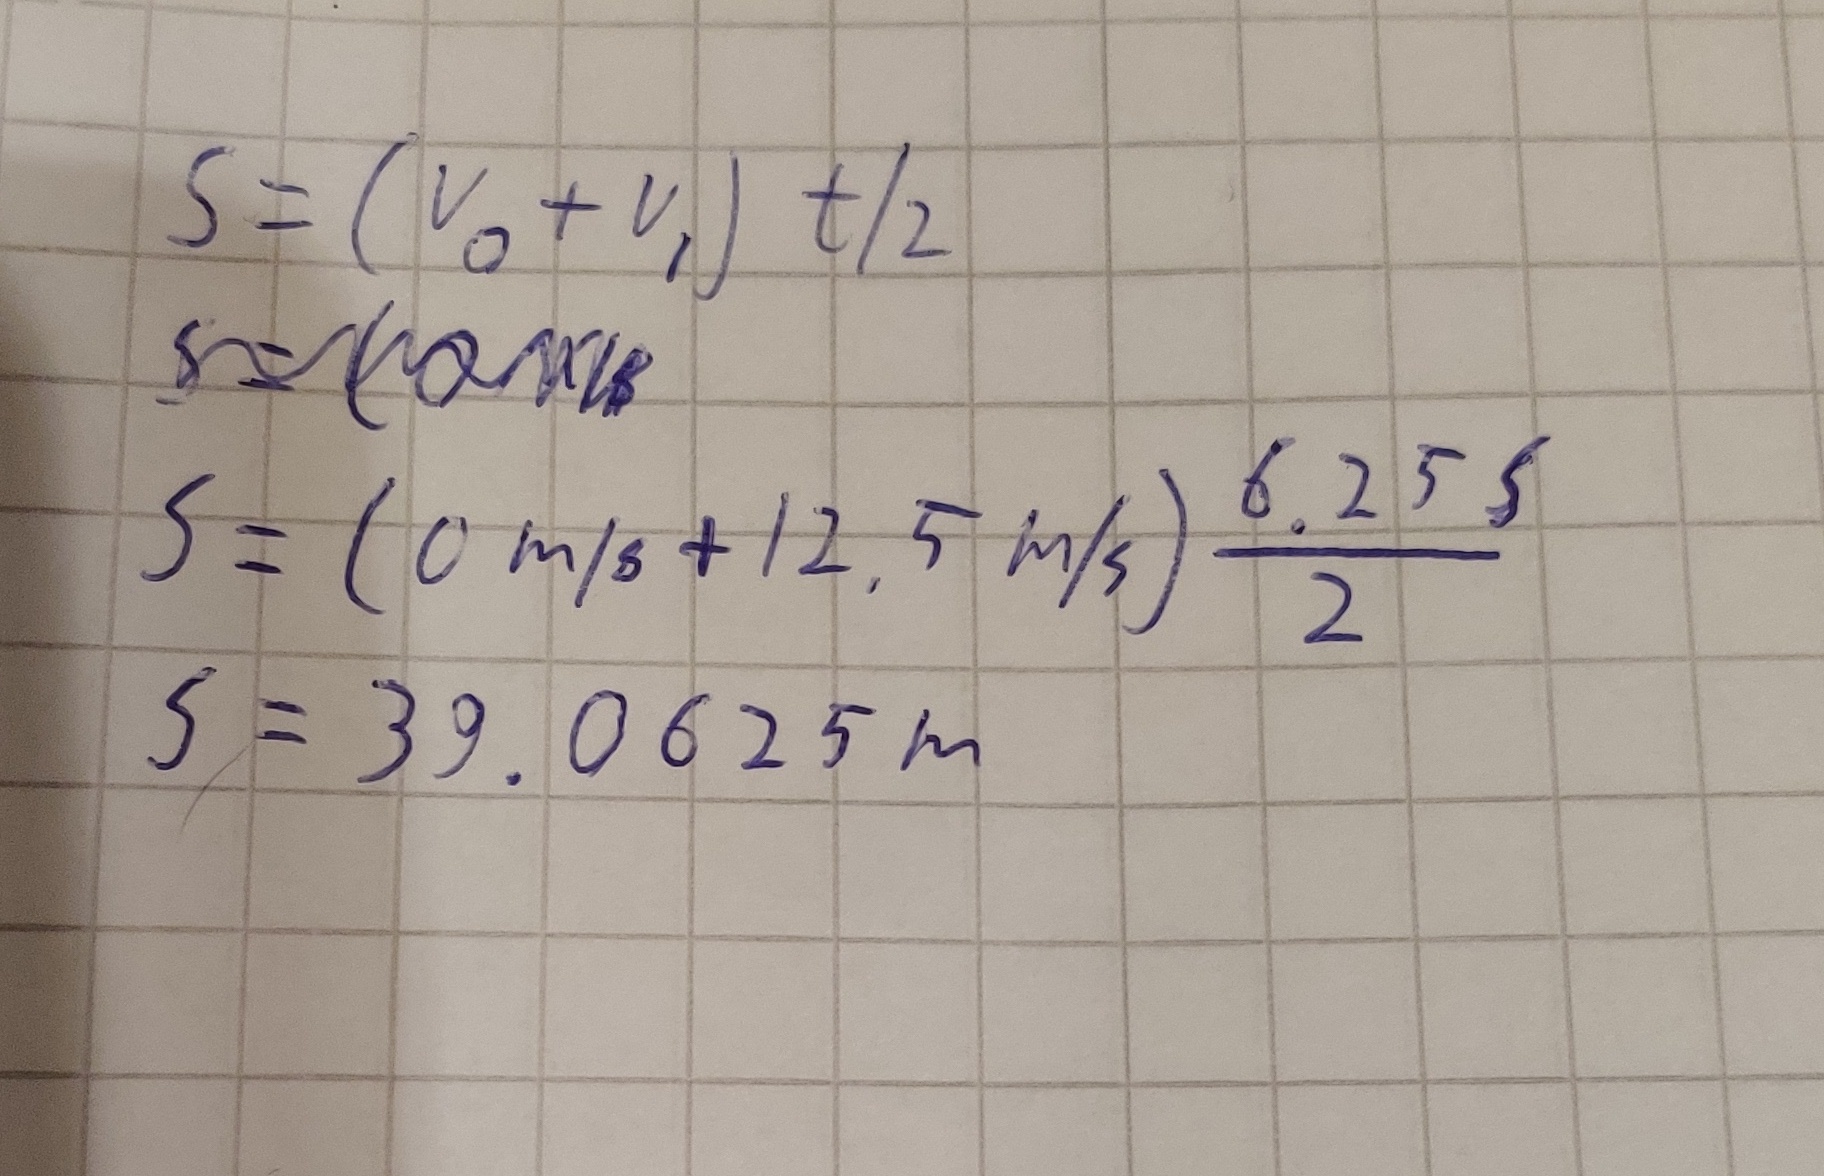 S = (v₀ + v₁) t/2
S = (0 m/s + 12.5 m/s) 6.25 s / 2
S = 39.0625 m